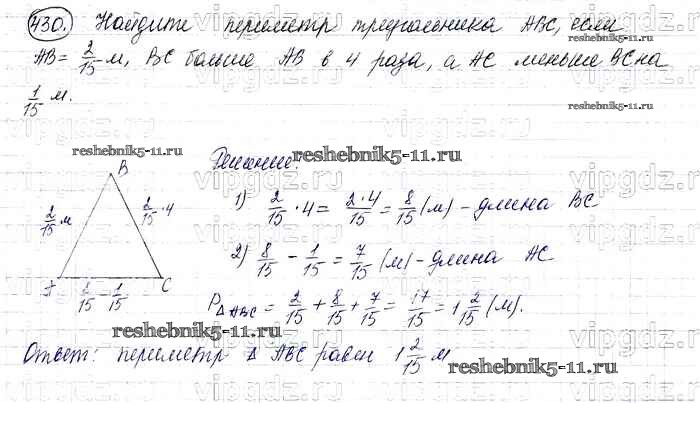 430. Найдите периметр треугольника АВС, если
АВ = 2/15 м, ВС больше АВ в 4 раза, а АС меньше ВС на
1/15 м.
reshebnik5-11.ru
reshebnik5-11.ru
reshebnik5-11.ru
Решение:
В
2/15 м
2/15 · 4
А
С
1) 2/15 · 4 = 2·4/15 = 8/15 (м) - длина ВС
2) 8/15 - 1/15 = 7/15 (м) - длина АС
P△ABC = 2/15 + 8/15 + 7/15 = 17/15 = 1 2/15 (м).
reshebnik5-11.ru
Ответ: периметр △ АВС равен 1 2/15 м
reshebnik5-11.ru
vipgdz.ru